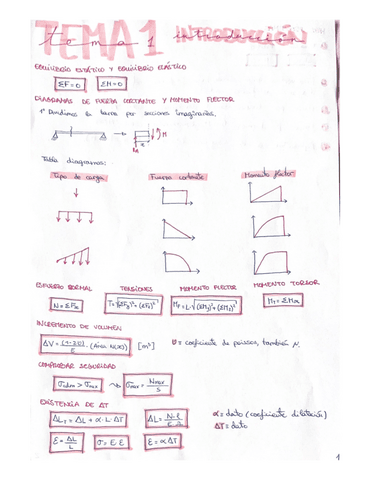 TEMA 1 INTRODUCCIÓN
EQUILIBRIO ESTÁTICO Y EQUILIBRIO ELÁSTICO
ΣF=0 ΣM=0
DIAGRAMAS DE FUERZA CORTANTE Y MOMENTO FLECTOR
1º Dividimos la barra por secciones imaginarias.
M
x
Tabla diagramas:
Tipo de carga Fuerza cortante Momento flector
ESFUERZO NORMAL TENSIONES MOMENTO FLECTOR MOMENTO TORSOR
N = ΣFx T=√(ΣFy)²+(ΣFz)² MF=L·√(ΣMy)²+(ΣMz)² MT = ΣMx
INCREMENTO DE VOLUMEN
ΔV = (1-2υ)/E · (Área N(x)) [m³] υ = coeficiente de poisson, también μ.
COMPROBAR SEGURIDAD
σadm > σmax σmax = Nmax/S
EXISTENCIA DE ΔT
ΔL = ΔL + α·L·ΔT ΔL = N·L/E·A α = dato (coeficiente dilatación)
ΔT = dato
ε = ΔL/L σ = E·ε ε = α ΔT
1